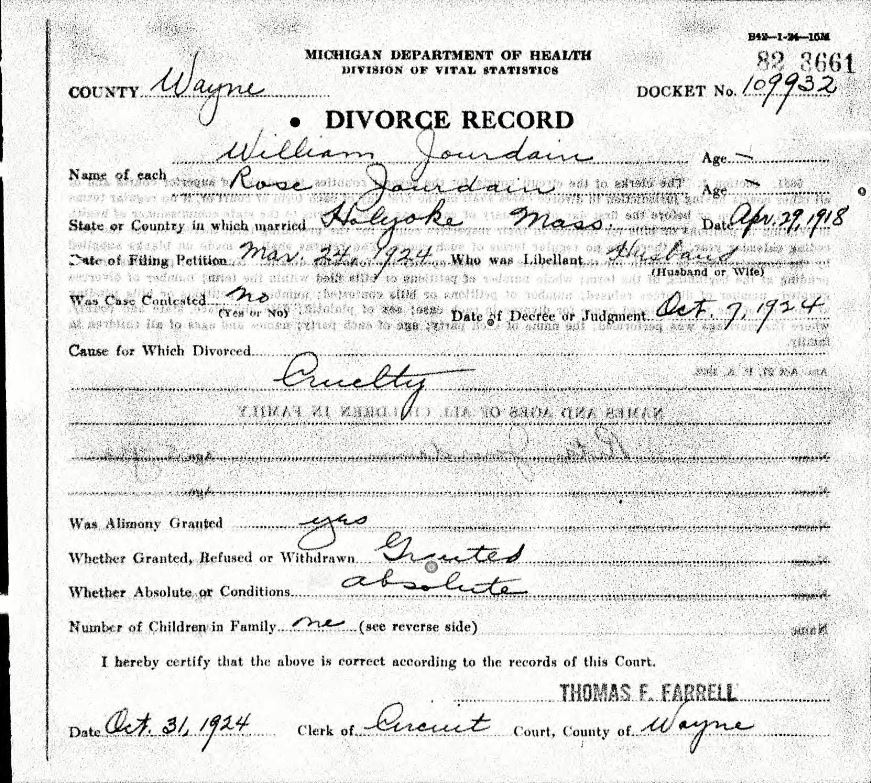 B42—1-24—15M
MICHIGAN DEPARTMENT OF HEALTH
DIVISION OF VITAL STATISTICS
82 3661
COUNTY Wayne
DOCKET No. 109932
DIVORCE RECORD
William Jourdain Age –
Name of each
Rose Jourdain Age –
State or Country in which married Holyoke Mass. Date Apr. 29, 1918
Date of Filing Petition Mar. 24, 1924 Who was Libellant Husband
(Husband or Wife)
Was Case Contested no
(Yes or No)
Date of Decree or Judgment Oct. 7, 1924
Cause for Which Divorced
Cruelty
NAMES AND AGES OF ALL CHILDREN IN FAMILY
Was Alimony Granted yes
Whether Granted, Refused or Withdrawn Granted
Whether Absolute or Conditions absolute
Number of Children in Family one (see reverse side)
I hereby certify that the above is correct according to the records of this Court.
THOMAS F. FARRELL
Date Oct. 31, 1924 Clerk of Circuit Court, County of Wayne